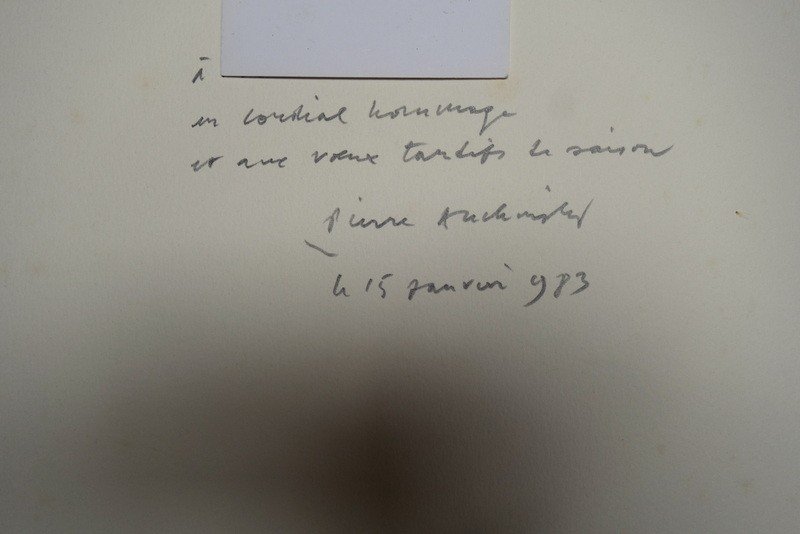 à
en cordial hommage
et avec vœux tardifs de saison
Pierre Alechinsky
le 15 janvier 983